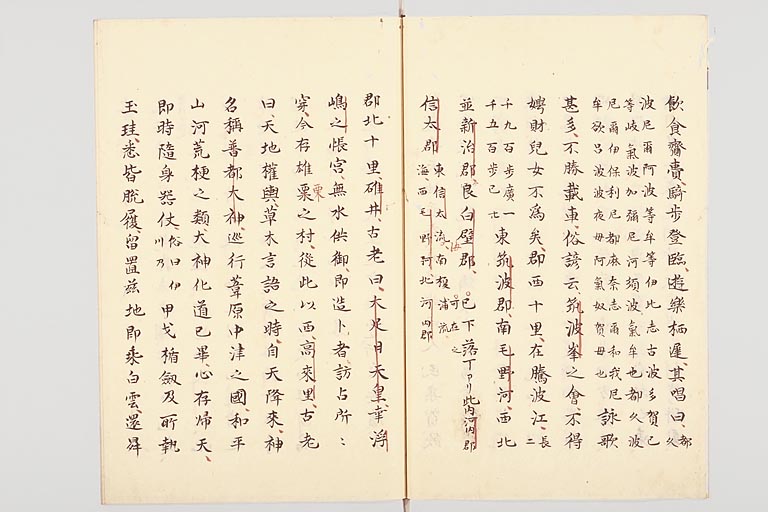 飲食齎賷、騎歩登臨、遊樂栖遲、其唱曰都久
波尼爾阿波等牟等伊比志古波多賀己
等岐氣波加彌尼河須波氣牟也都久波
尼爾伊保利尼都麻奈志爾和我尼
牟欲呂波夜毋阿氣奴賀毋也
詠歌
甚多、不勝載車、俗諺云、筑波峯之會、不得
娉財兒女不為矣、郡西十里、在騰波江、長二
千九百歩廣一
千五百歩已七
東筑波郡、南毛野河、西北
並新治郡、艮白壁郡、
已下落丁アリ此内河内郡
可在之
信太郡
東信太流海南榎浦流
海、西毛野河北河内郡
郡北十里、碓井、古老曰、大足日天皇幸浮
嶋之帳宮、無水供御、即造卜者訪占所〻
穿、今存雄粟之村、從此以西、高來里、古老
栗
曰、天地權輿、草木言語之時、自天降來、神
名稱普都大神、巡行葦原中津之國、和平
山河荒梗之類大神化道已畢、心存歸天、
即時隨身器仗、俗曰伊川乃
甲戈楯劔及所執
玉珪、悉皆脱履、留置茲地、即乘白雲、還昇